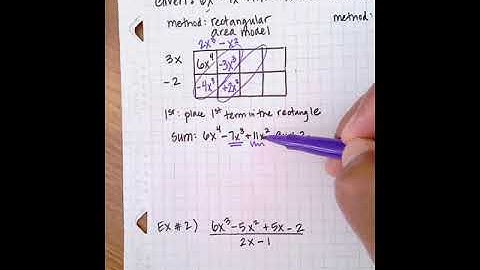 method: rectangular
area model
method:
2x³ - x²
3x 6x⁴ -3x³
-2 -4x³ +2x²
1st: place 1st term in the rectangle
sum: 6x⁴ - 7x³ + 11x²
Ex #2) 6x³ - 5x² + 5x - 2
2x - 1